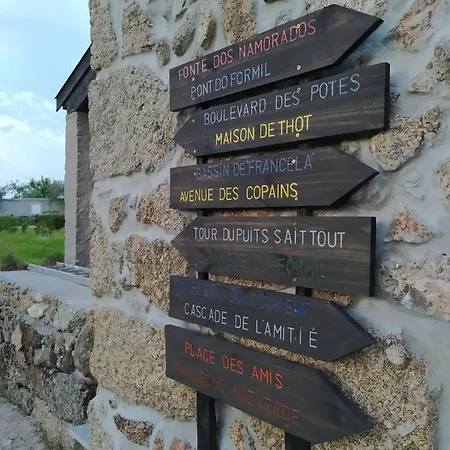 FONTE DOS NAMORADOS
PONT DO FORMIL
BOULEVARD DES POTES
MAISON DE THOT
BASSIN DE FRANCELA
AVENUE DES COPAINS
TOUR DU PUITS SAIT TOUT
FORMIL
CASCADE DE L'AMITIÉ
PLACE DES AMIS